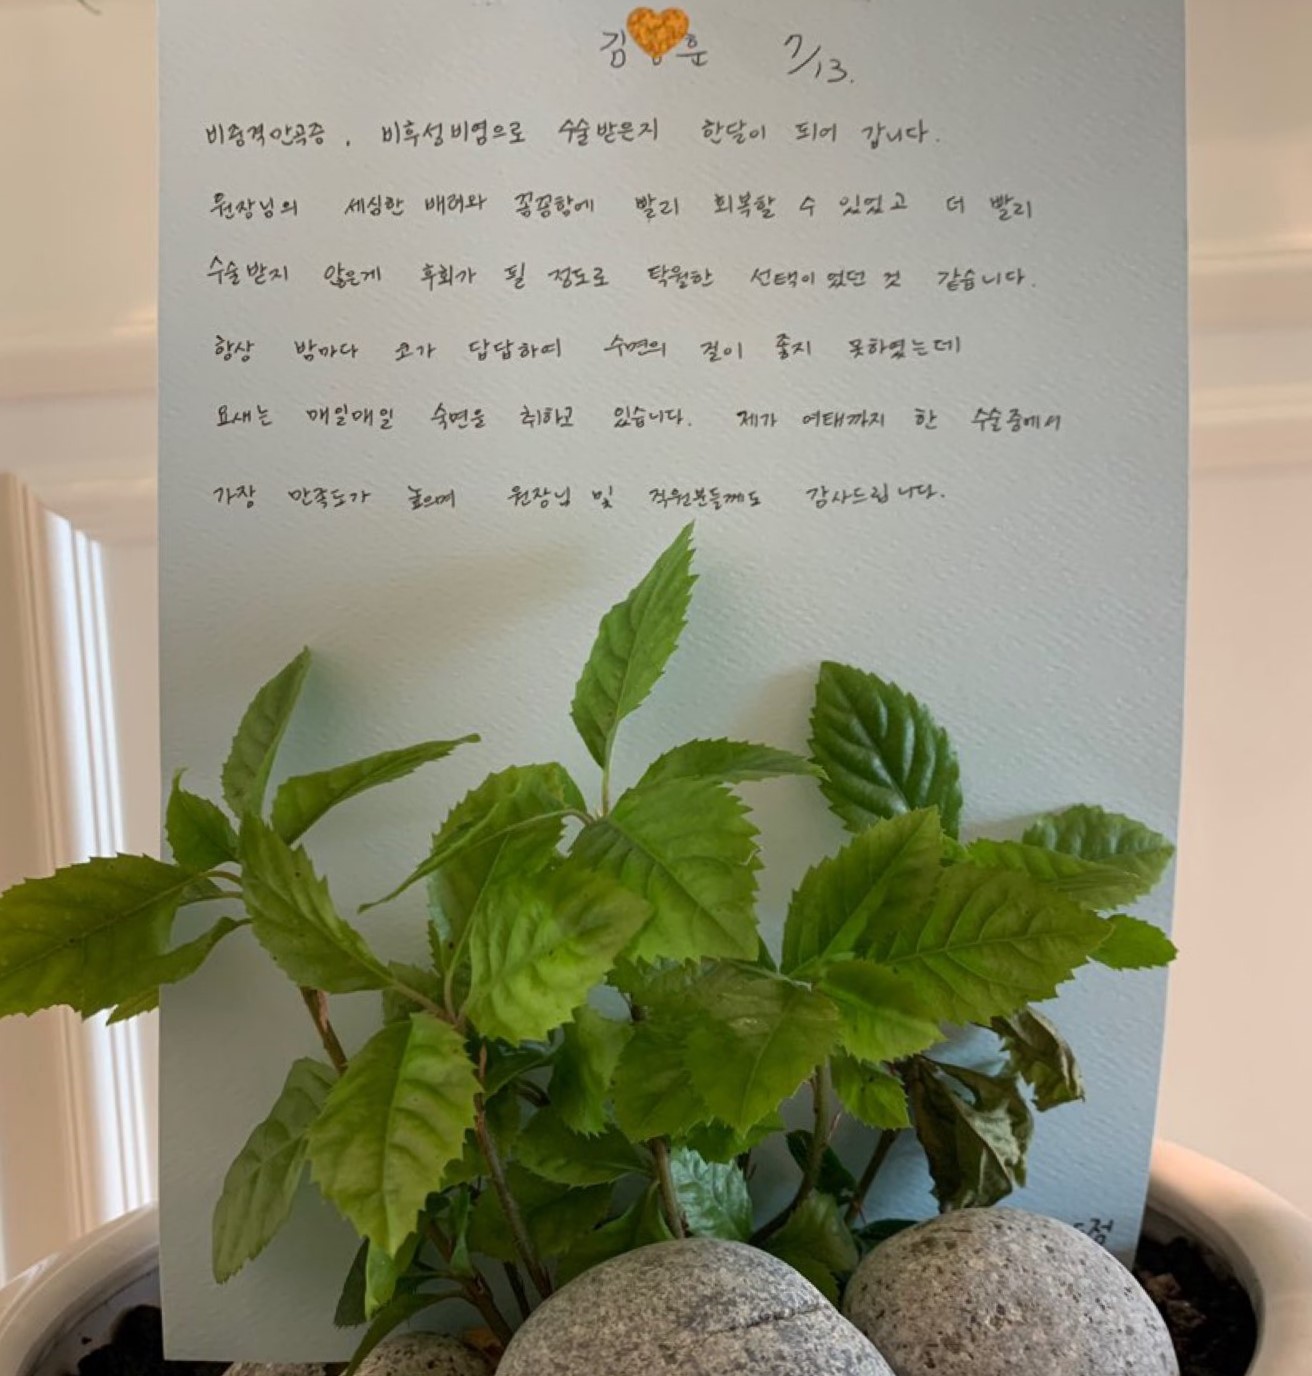 김 훈 7/13.
비중격만곡증, 비후성비염으로 수술받은지 한달이 되어 갑니다.
원장님의 세심한 배려와 꼼꼼함에 빨리 회복할 수 있었고 더 빨리
수술받지 않은게 후회가 될 정도로 탁월한 선택이였던 것 같습니다.
항상 밤마다 코가 답답하여 수면의 질이 좋지 못하였는데
요새는 매일매일 숙면을 취하고 있습니다. 제가 여태까지 한 수술중에서
가장 만족도가 높으며 원장님 및 직원분들께도 감사드립니다.
점